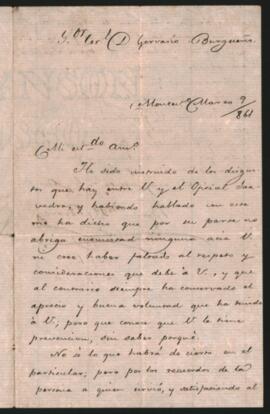 Sor Corl D Gervasio Burgueño
Montevo Marzo 9/861
Mi estdo Amo
He sido instruido de los disgus-
tos que hay entre V. y el Oficial Saa-
vedra, y habiendo hablado con este
me ha dicho que por su parte no
abriga enemistad ninguna acia V.
ni cree haber faltado al respeto y
consideraciones que debe á V., y que
al contrario siempre ha conservado el
aprecio y buena voluntad que ha tenido
á V., pero que conoce que V. le tiene
prevencion, sin saber porqué.
No sé lo que habrá de cierto en el
particular, pero por los recuerdos de la
persona a quien sirvió, y satisfaciendo al